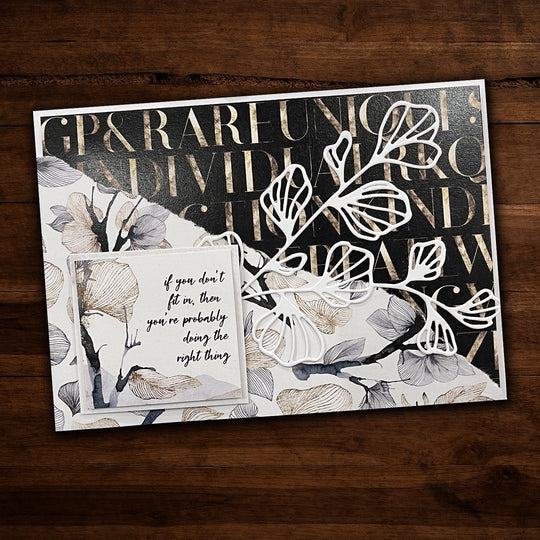 GP&RAREUNIQU
INDIVIDUAL
if you don't
fit in, then
you're probably
doing the
right thing